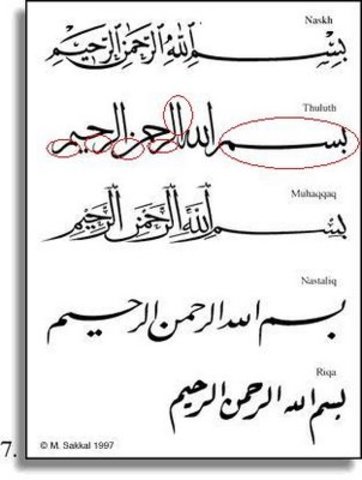 Naskh
بِسْمِ اللهِ الرَّحْمٰنِ الرَّحِيْمِ
Thuluth
بسم الله الرحمن الرحيم
Muhaqqaq
بِسْمِ اللَّهِ الرَّحْمَنِ الرَّحِيمِ
Nastaliq
بسم الله الرحمن الرحیم
Riqa
بسم الله الرحمن الرحيم
7. © M. Sakkal 1997